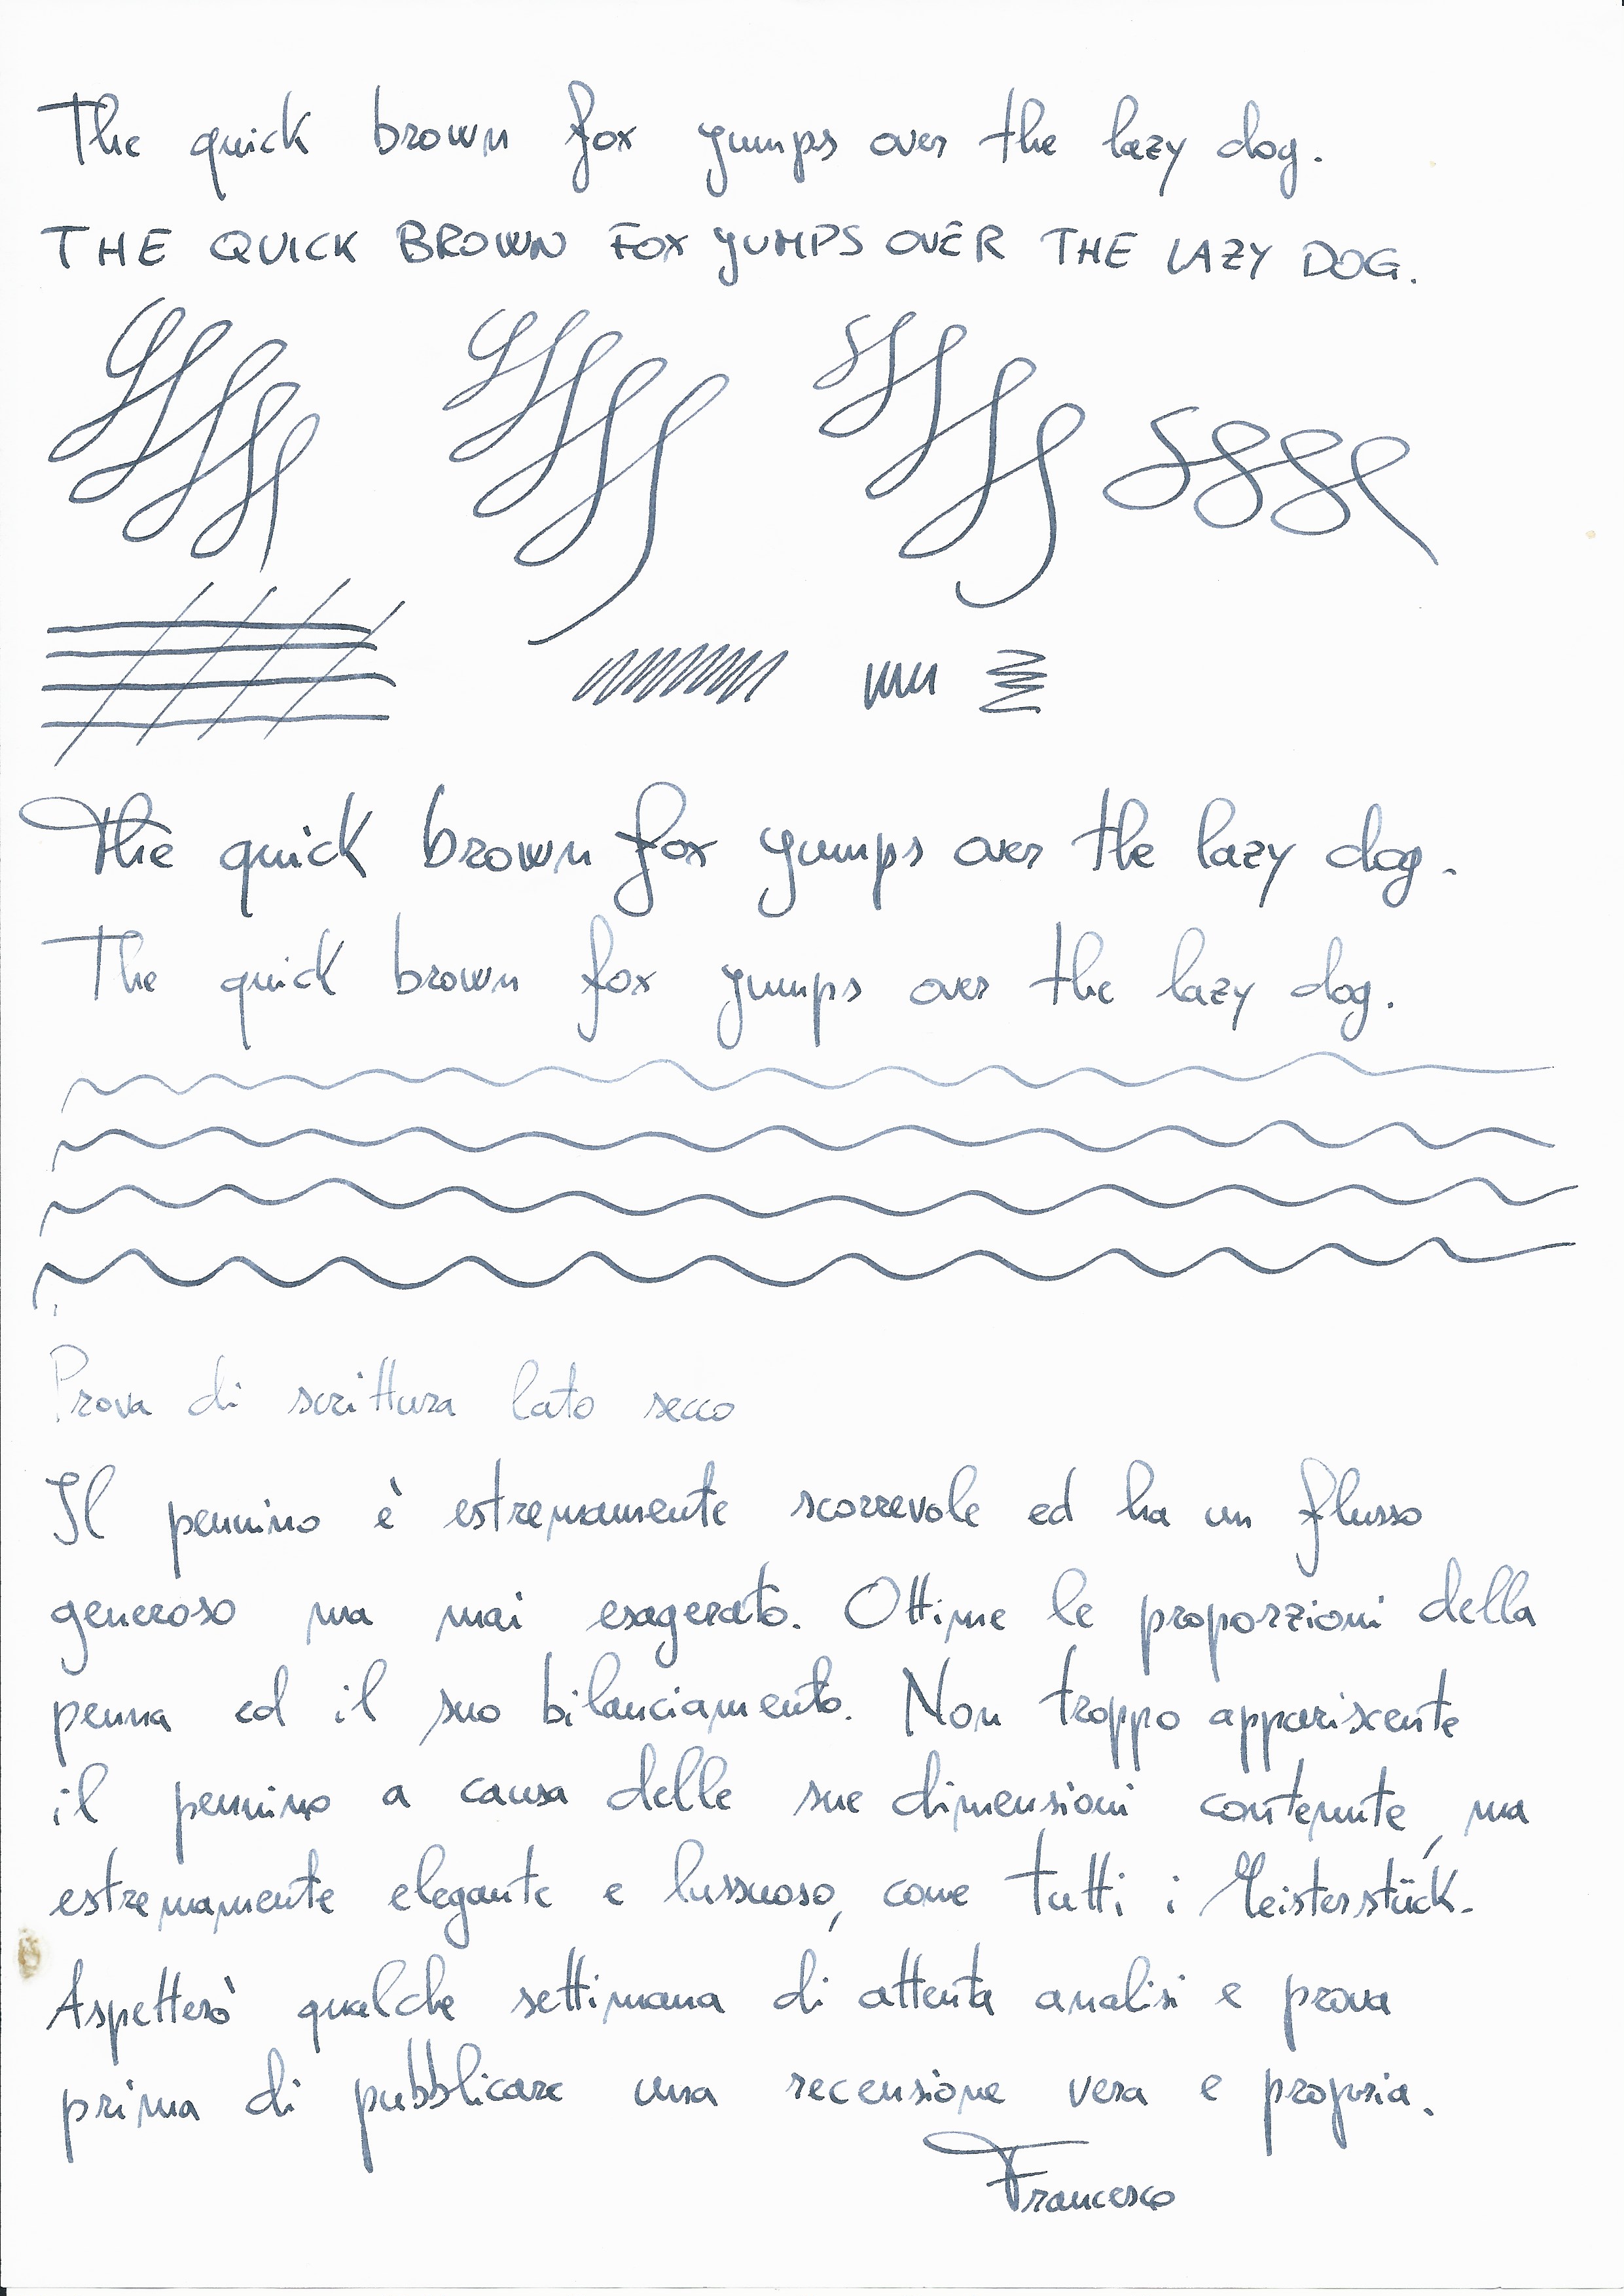 The quick brown fox yumps over the lazy dog.
THE QUICK BROWN FOX YUMPS OVER THE LAZY DOG.
The quick brown fox yumps over the lazy dog.
The quick brown fox yumps over the lazy dog.
Prova di scrittura lato secco
Il pennino è estremamente scorrevole ed ha un flusso
generoso ma mai esagerato. Ottime le proporzioni della
penna ed il suo bilanciamento. Non troppo appariscente
il pennino a causa delle sue dimensioni contenute, ma
estremamente elegante e lussuoso, come tutti i Meisterstück.
Aspetterò qualche settimana di attenta analisi e prova
prima di pubblicare una recensione vera e propria.
Francesco